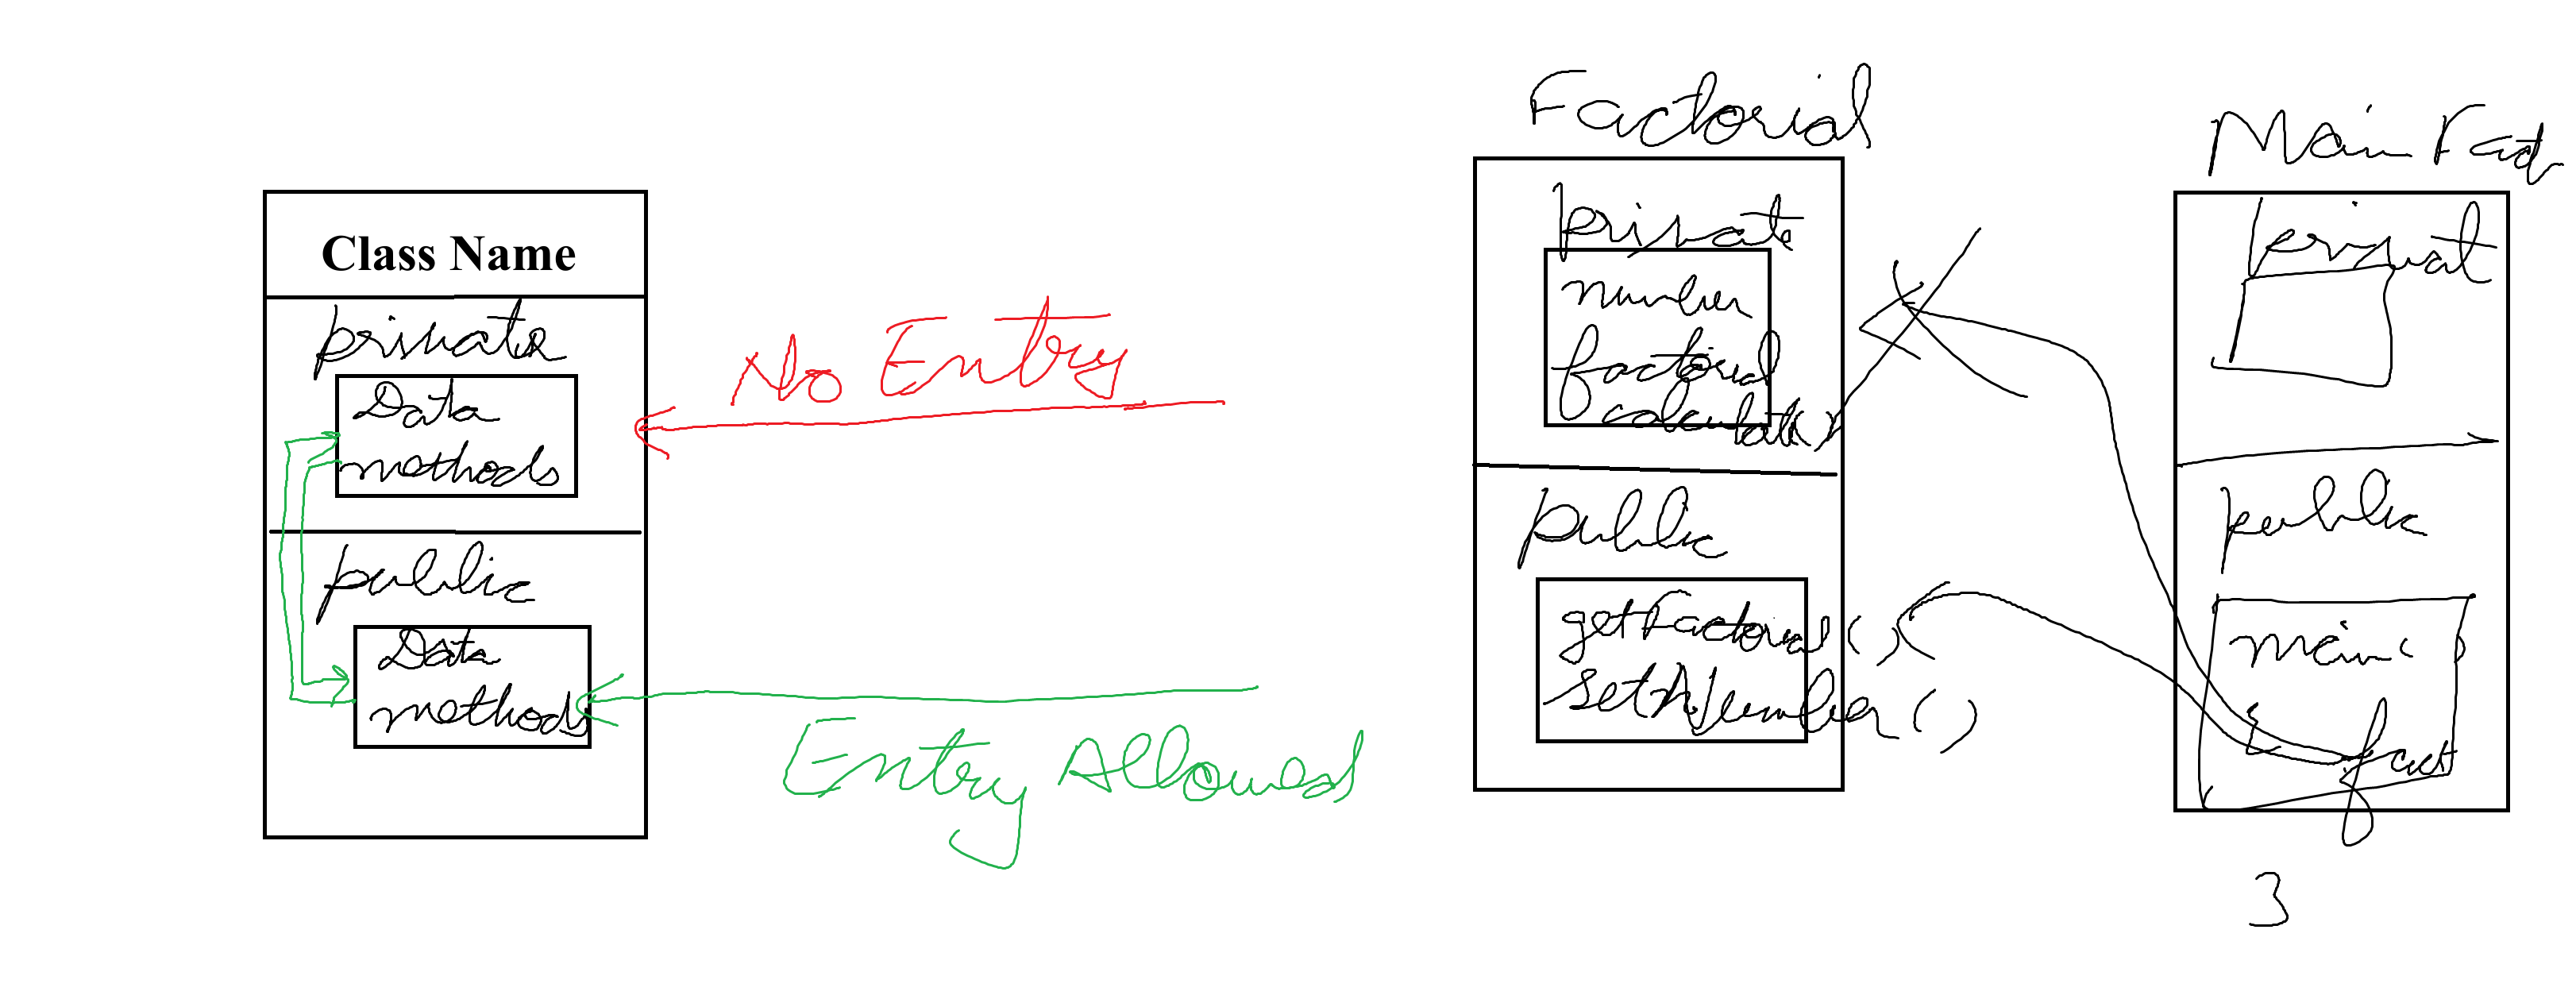 Class Name
private
Data
methods
public
Data
methods
No Entry
Entry Allowed
Factorial
private
number
factorial
calculate()
public
getFactorial()
setNumber()
Main Fact
privat
public
main()
{ fact
3